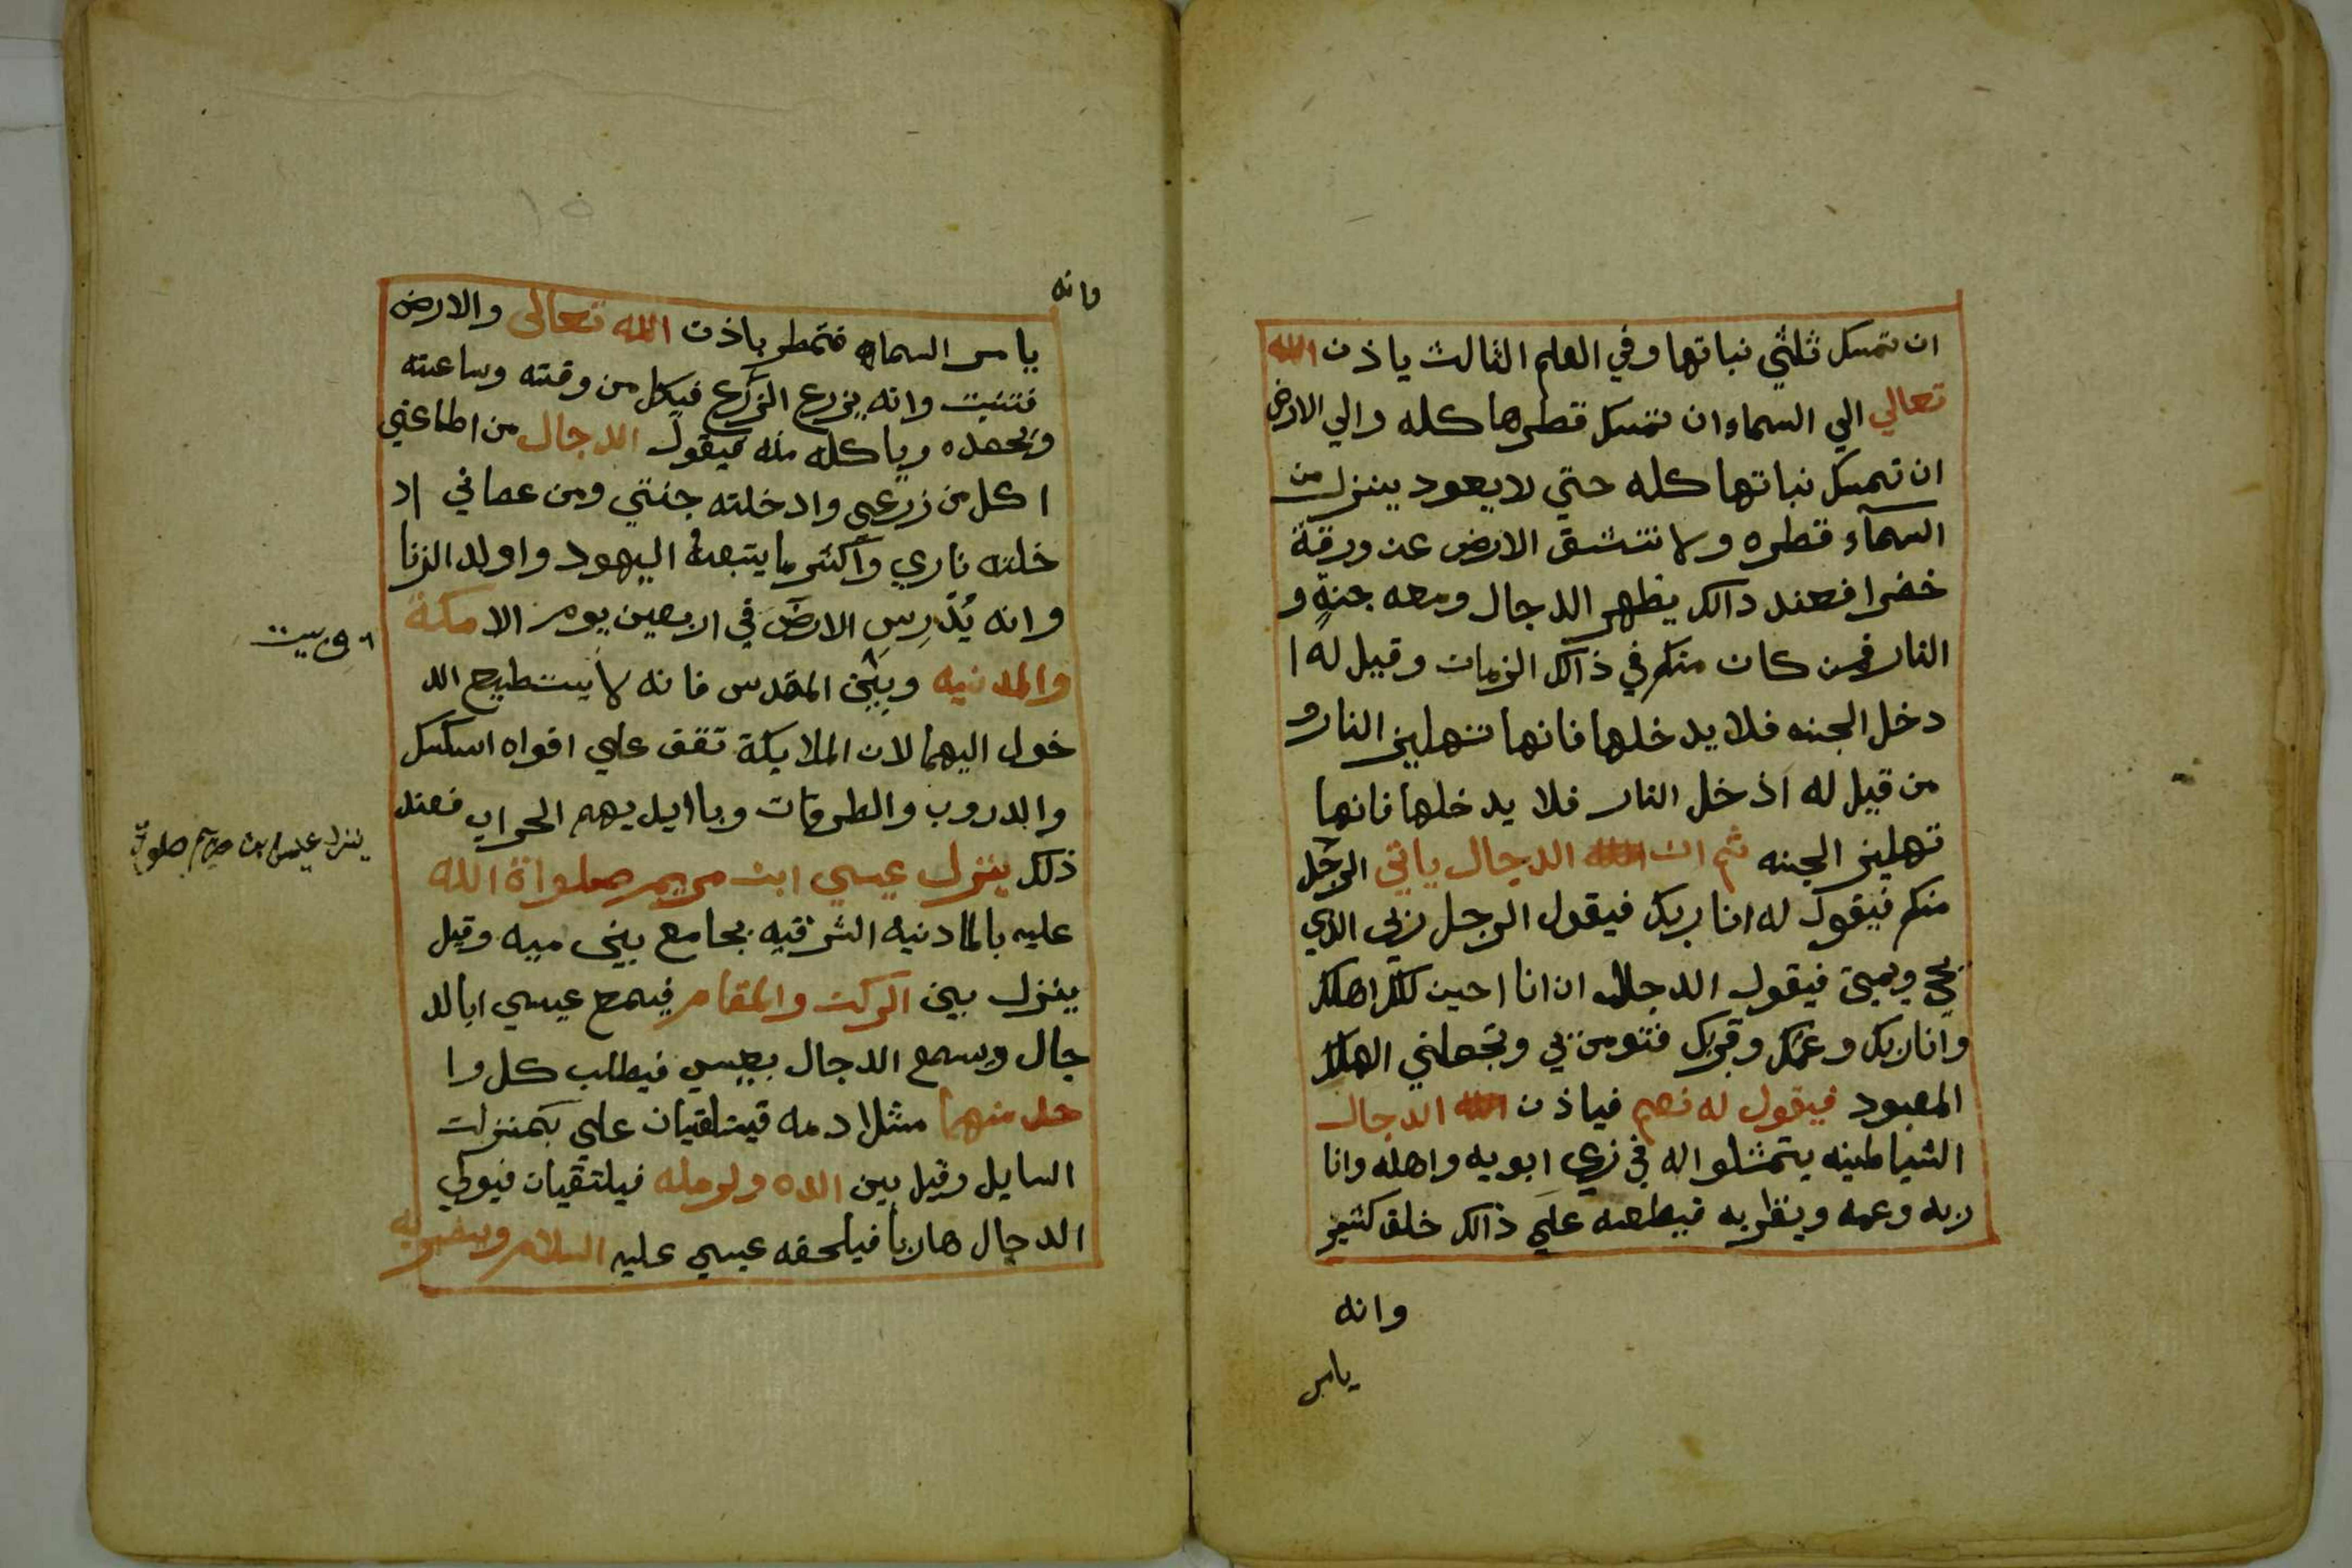 ان تمسك ثلثي نباتها وفي العلم الثالث ياذن الله
تعالي الي السماء ان تمسك قطرها كله والي الارض
ان تمسك نباتها كله حتي لا يعود ينزل من
السمآء قطره ولا تنشق الارض عن ورقة
خضرا فعند دالك يظهر الدجال ومعه جنة و
النار فمن كان منكم في ذالك الزمان وقيل له ا
دخل الجنه فلا يدخلها فانها تنهلين النار و
من قيل له اذخل النار فلا يدخلها فانها
تهلين الجنه ثم ان الدجال ياتي الرجل
منكم فيقول له انا ربك فيقول الرجل ربي الذي
يحي ويميت فيقول الدجال ان انا احين لك اهلك
وانا ربك وعمك وقربك فتومن بي وتجعلني الهك
المعبود فيقول له نعم فياذن الدجال
الشياطينه يتمثلوا له في زي ابويه واهله وانا
ربه وعمه ويقربه فيطعه علي ذالك خلق كثير
وانه
يامر
وانه
يامر السماء فتمطر باذن الله تعالى والارض
فتنبت وانه يزرع الزرع فيكل من وقته وساعته
ويحصده وياكله منه فيقول الدجال من اطاعني
اكل من زرعي وادخلته جنتي ومن عصاني اد
خلته ناري واكثر ما يتبعه اليهود واولد الزنا
وانه يُدْرِس الارض في اربعين يوم الا مكة
والمدنيه وبين المقدس فانه لا يستطيع الد
وبيت
خول اليهما لان الملايكة تقف علي افواه السكك
والدروب والطرقات وباايديهم الحراب فعند
ذلك ينزل عيسي ابن مريم صلواة الله
ينزل عيسى ابن مريم صلوات
عليه بالمادنيه الشرقيه بجامع بيني ميه وقيل
ينزل بين الركن والمقام فيسمع عيسي ابالد
جال ويسمع الدجال بعيسي فيطلب كل وا
حد منهما مثلا دمه فيتلقيان علي بكمنزلت
السايل وقيل بين اللده ولرمله فيلتقيان فيولي
الدجال هاربا فيلحقه عيسي عليه السلام ويضربه